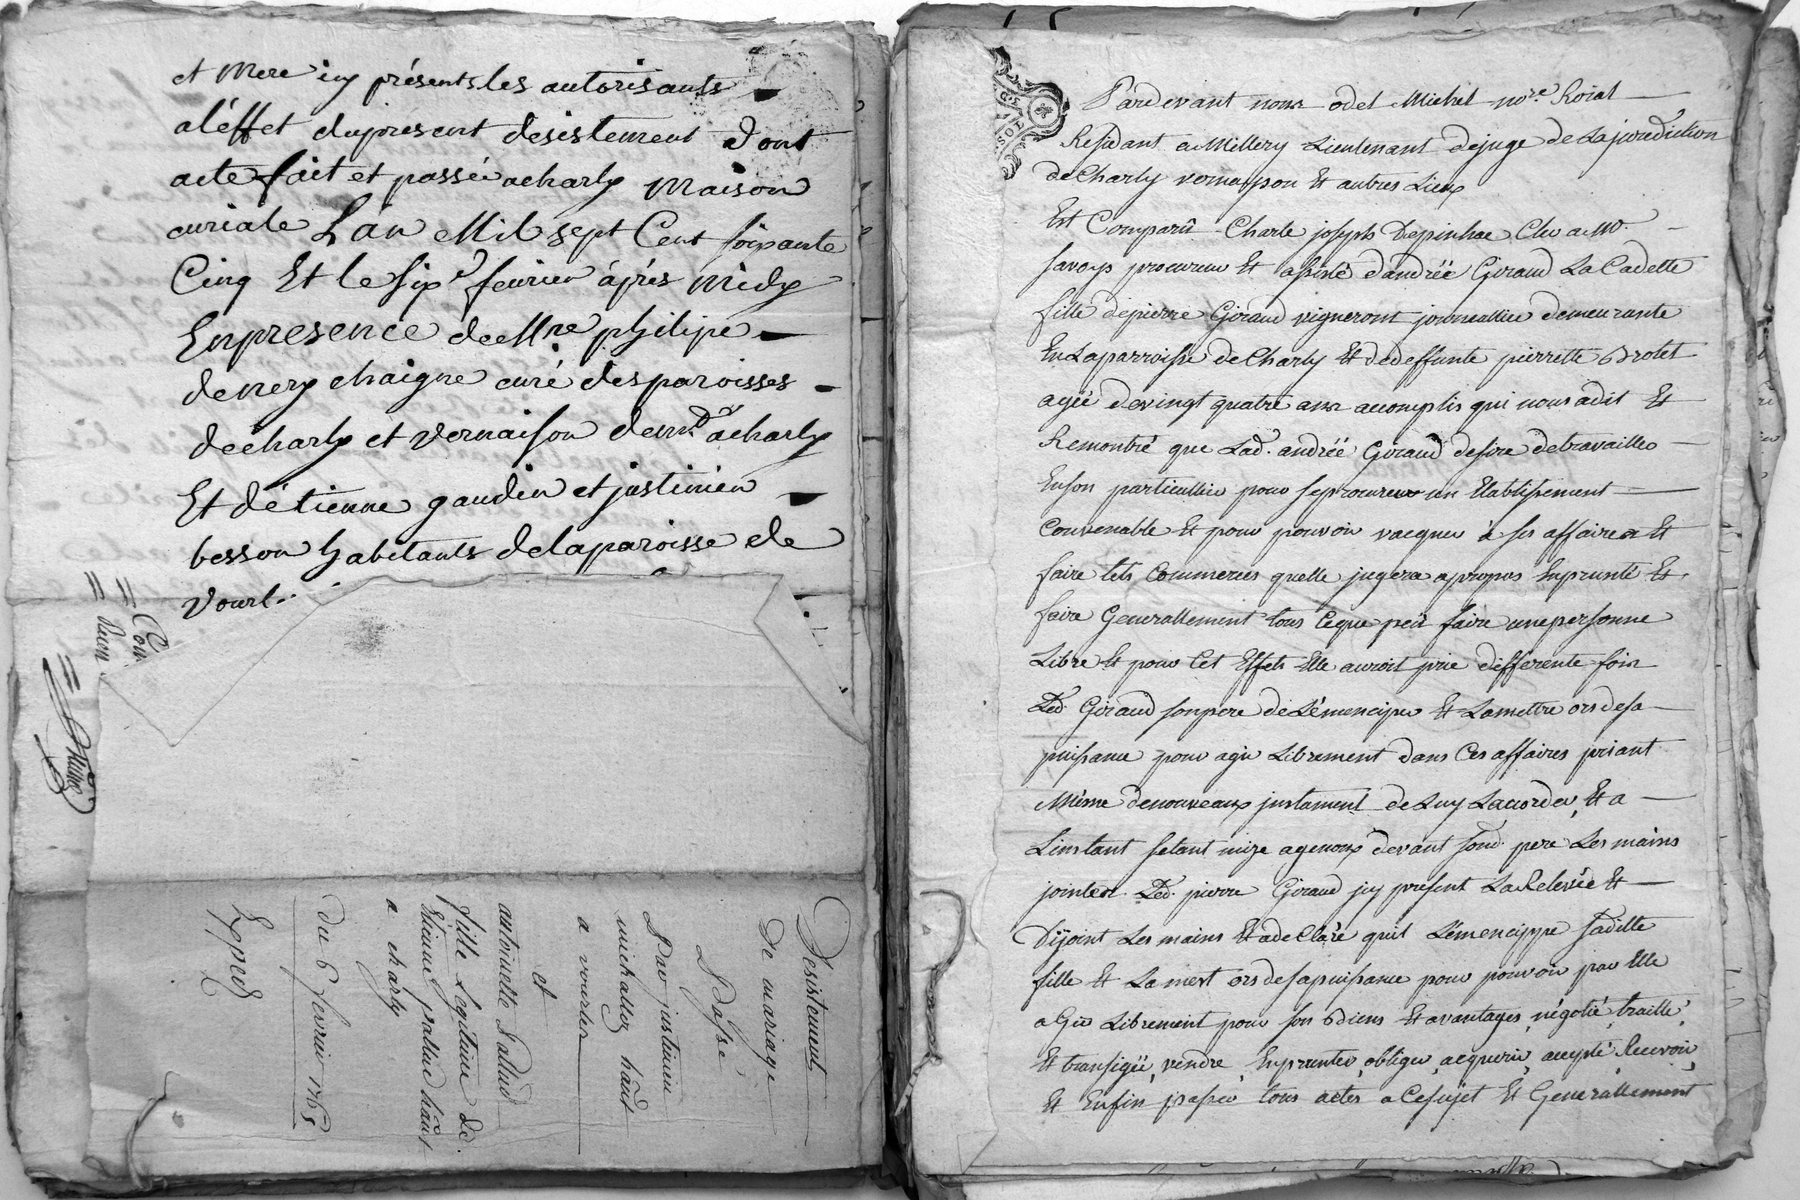 et Mere icy présents les autorisants
aléffet dupresent desistement dont
acte fait et passée acharly Maison
curiale Lan Mil sept Cent soixante
Cinq Et le six fevrier âprés Midy
Enpresence de Mre philipe
denery chaigne curé des paroisses
decharly et vernaison demt acharly
Et détienne gaudin et justinien
besson habitants delaparoisse de
Vourl..
= Con
= Dition
Desistement
De mariage
Passé
Par justinien
michallon hãnt
a vourles
et
antoinette Pallud
fille Legitime de
Etienne pallud hãnt
a charly
du 6 fevrier 1765
Exped
GEN
SOL
Pardevant nous odet Michel nore. Roial
Residant a Millery Lieutenant dejuge de Lajuridiction
de Charly vernayson Et autres Lieux
Est Comparû Charle joseph Depinhac
procureur Et assisté d'andréë Giraud La Cadette
fille depierre Giraud vigneront journallier demeurante
En Laparroisse de Charly Et dedeffunte pierrette Brotet
agëe devingt quatre ans accomplis qui nous adit Et
Remontré que Lad. andréë Giraud desire detravailler
Enson particullier pour seprocurer un Etablissement
Convenable Et pour pouvoir vacquer à ses affaires Et
faire tels Commerces quelle jugera apropos Enprunté Et
faire Generallement tous Ceque peût faire unepersonne
Libre Et pour Cet Effets Elle auroit prie differente fois
Led. Giraud sonpere de Lémenciper Et Lamettre ors desa
puissance pour agir Librement dans Ces affaires priant
Même denouveaux justament de Luy Laccorder, Et a
Linstant setant mize agenoux devant sond. pere Les mains
jointes. Led. pierre Giraud icy present La Relevée Et
Dijoint Les mains Et adeClaré quil Lémencippe Saditte
fille Et La met ors desapuissance pour pouvoir par Elle
aGir Librement pour son Biens Et avantages, négotié, traillé,
Et transigër, vendre, Enprunter, obliger, acquerir, accepté, Recevoir,
Et Enfin passer tous actes aCesujet Et Generallement